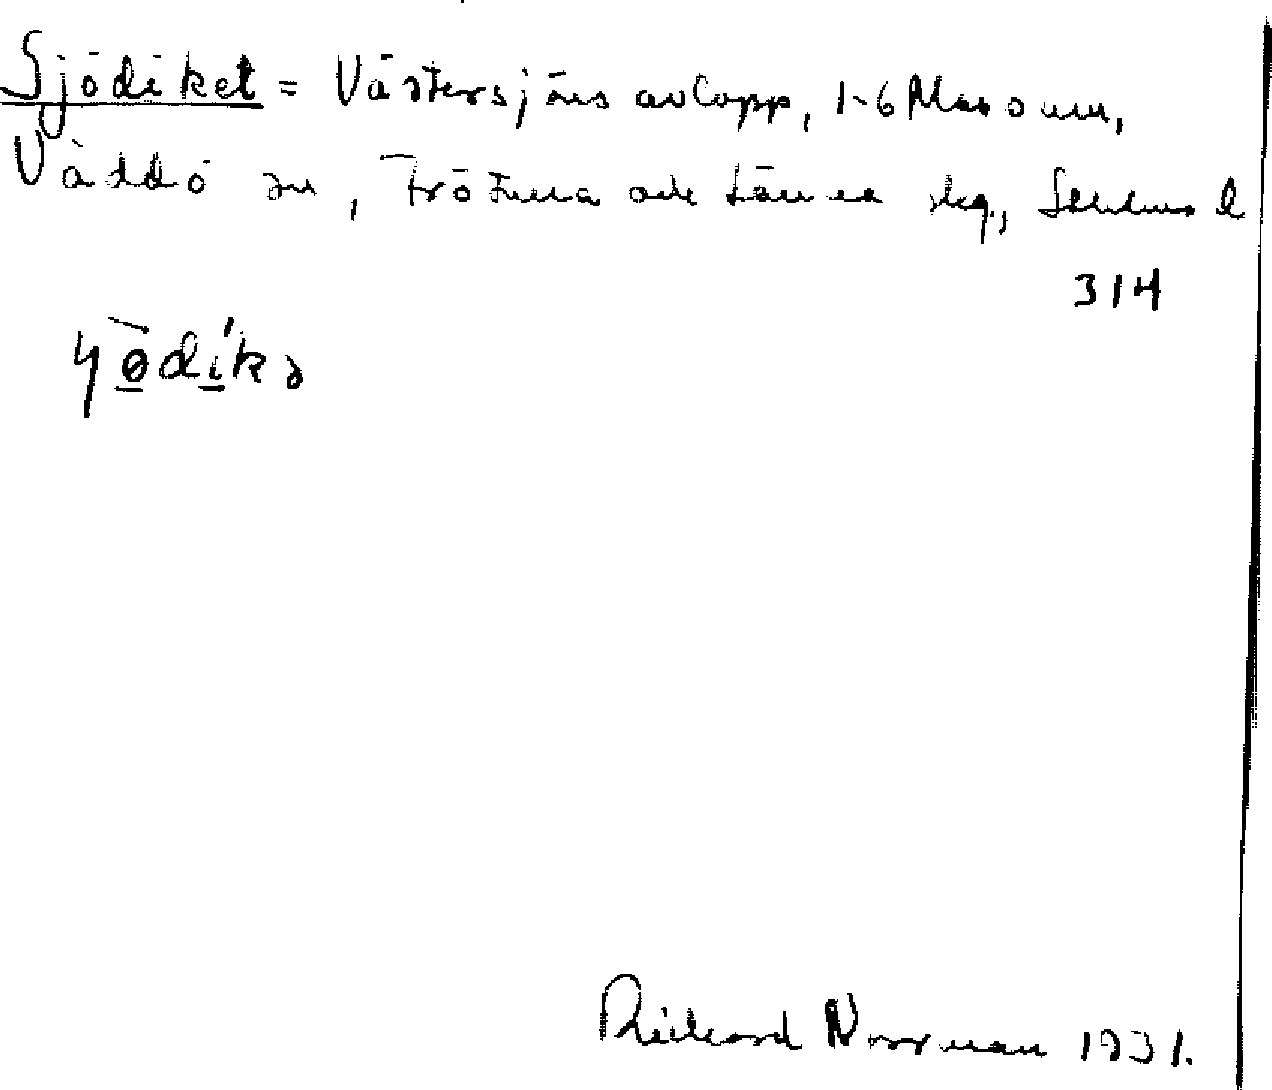 Sjödiket = Västersjöns avlopp, 1-6 Massum,
Väddö sn, Frötuna och Länna skg., Stockholms l
314
ɧø̄dìkə
Rickard Norrman 1931.